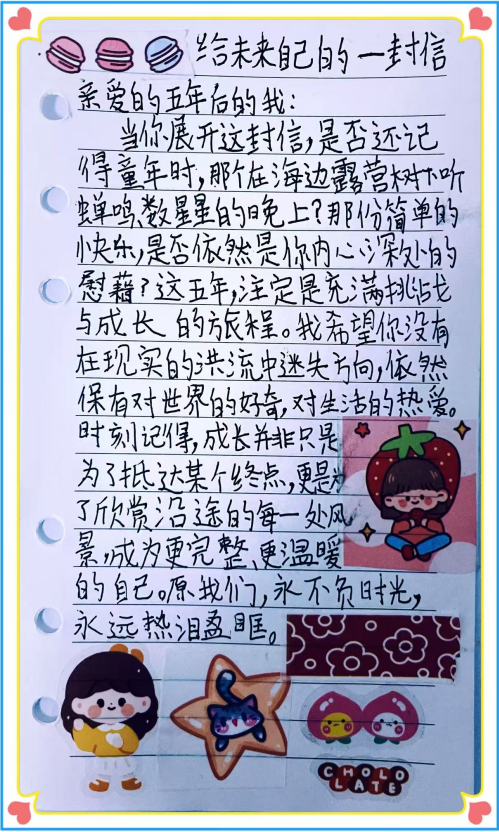 给未来自己的一封信
亲爱的五年后的我:
当你展开这封信,是否还记
得童年时,那个在海边露营树下听
蝉鸣,数星星的晚上?那份简单的
快乐,是否依然是你内心深处的
慰藉?这五年,注定是充满挑战
与成长的旅程。我希望你没有
在现实的洪流中迷失方向,依然
保有对世界的好奇,对生活的热爱。
时刻记得,成长并非只是
为了抵达某个终点,更是为
了欣赏沿途的每一处风
景,成为更完整、更温暖
的自己。愿我们,永不负时光,
永远热泪盈眶。
CHOLO
LATE